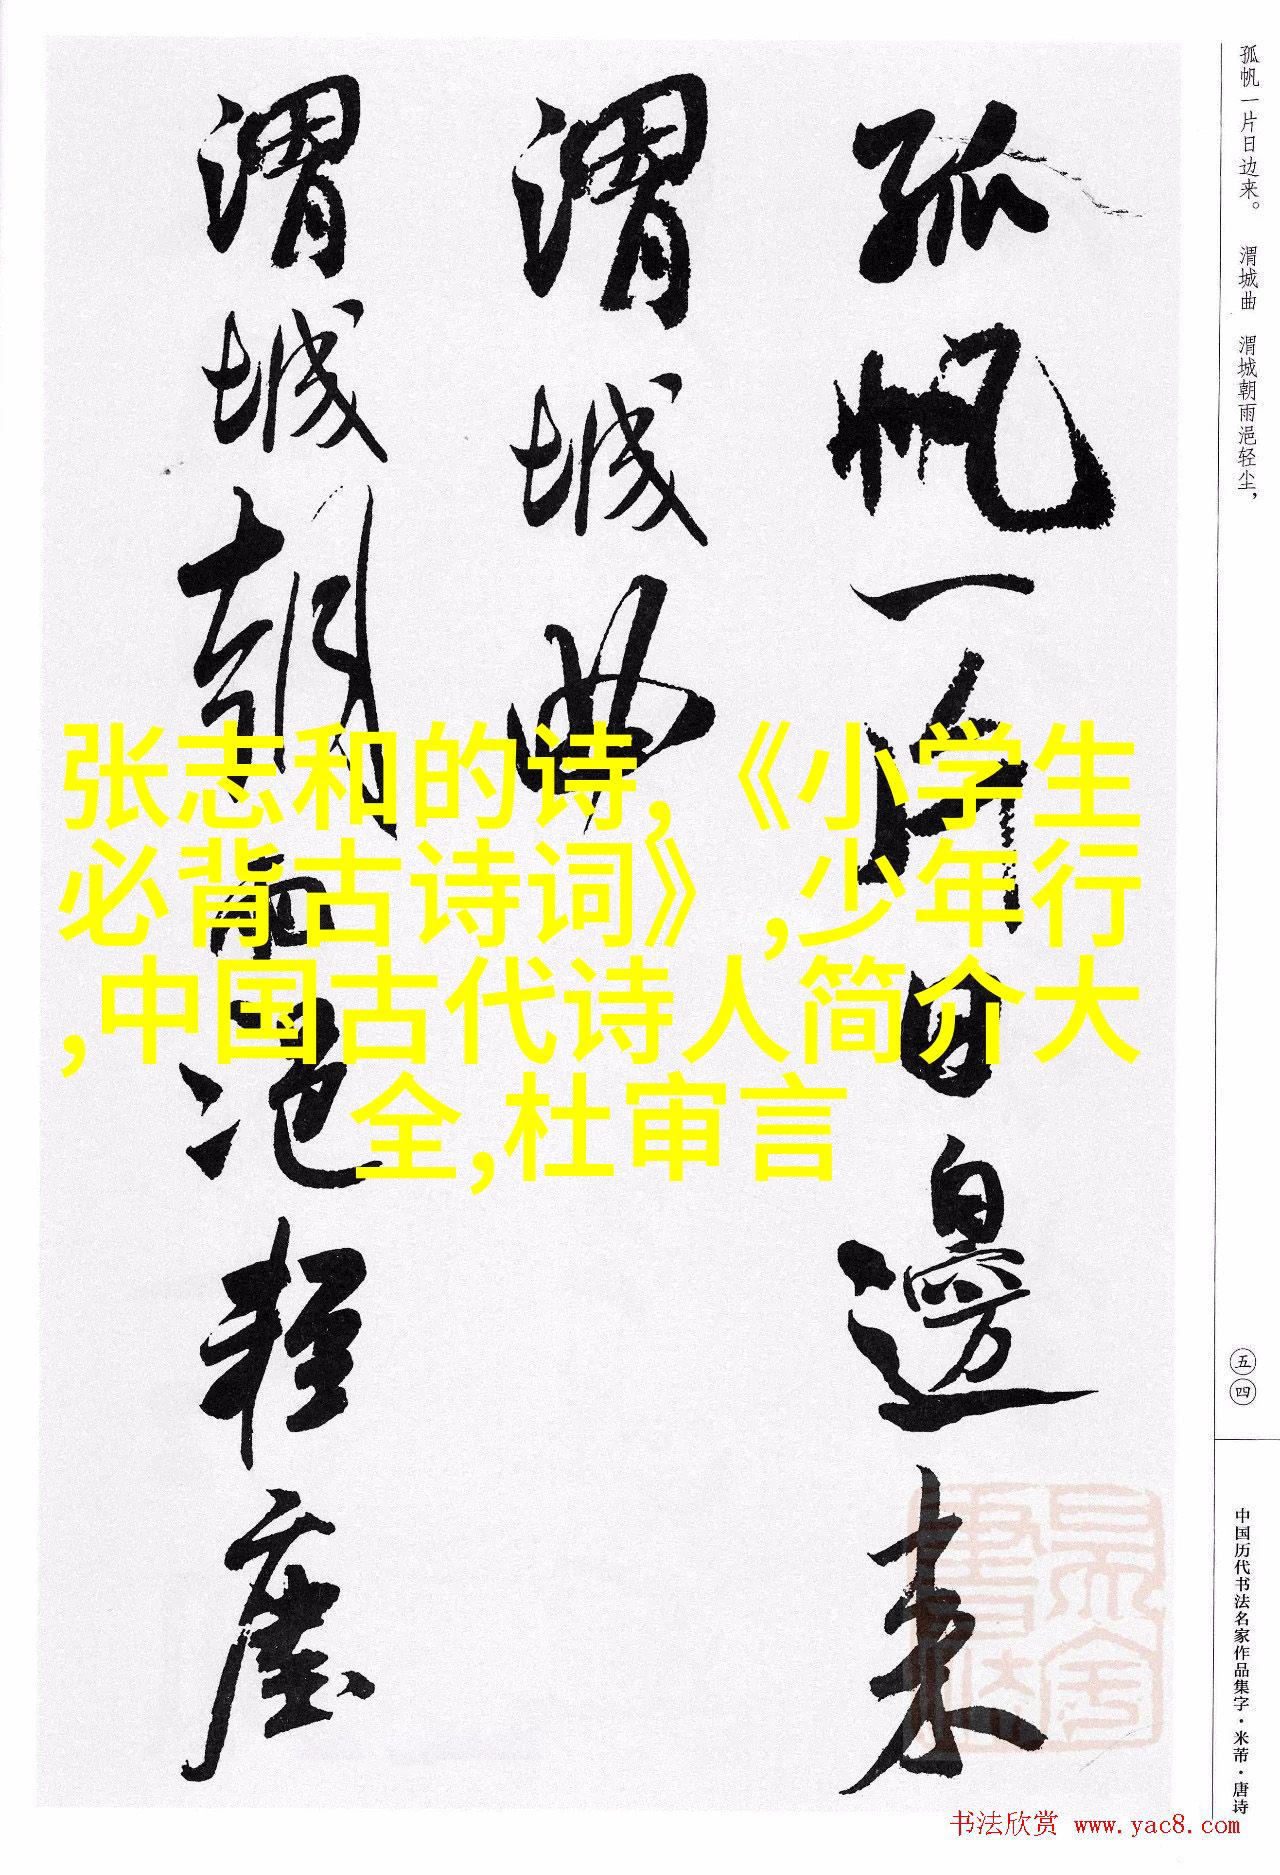 孤帆一片日边来。 渭城曲 渭城朝雨浥轻尘，
孤帆一片日邊来
渭城曲
渭城朝雨浥轻塵
张志和的诗,《小学生
必背古诗词》,少年行
,中国古代诗人简介大
全,杜审言
五四
中国历代书法名家作品集字·米芾·唐诗
书法欣赏 www.yac8.com